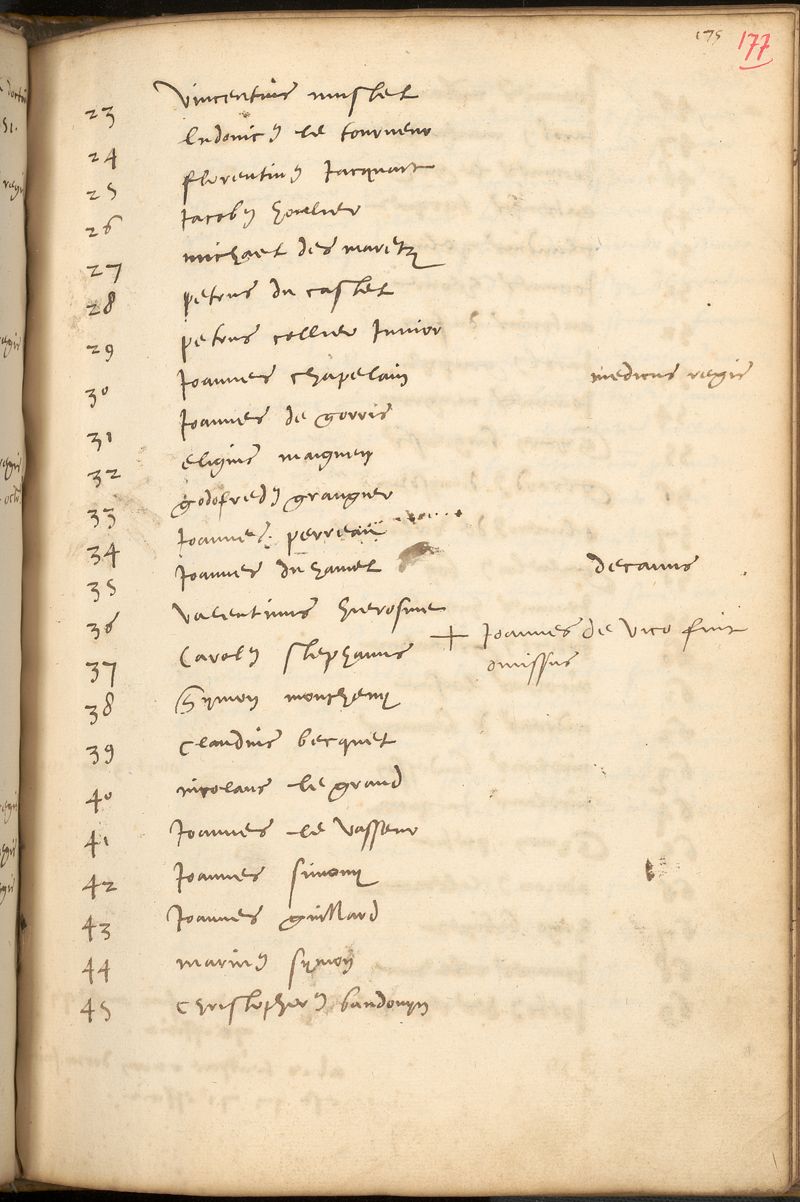 175 177
23 Vincentius mustel
24 ludovicꝰ le tourneur
25 florentinꝰ Jacquart
26 Jacobꝰ houlier
27 michael des maretz
28 petrus du castel
29 petrus collier Junior
30 Joannes chapelain medicus regis
31 Joannes de gorris
32 eligius maignen
33 godofredꝰ granguer
34 Joannes perreau
35 Joannes du hamel decanus
36 Valentinus hierosme
37 Carolꝰ stephanus + Joannes de Vico fuit
omissus
38 Symon moncheny
39 Claudius becquet
40 nicolaus le grand
41 Joannes le Vasseur
42 Joannes simony
43 Joannes guillard
44 marinꝰ symon
45 Christopherꝰ baudouyn